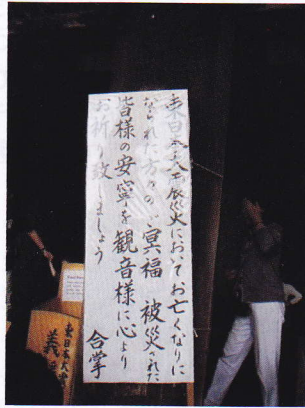 東日本大震災においてお亡くなりに
なられた方々の、冥福 被災された
皆様の安寧を観音様に心より
お祈り致しましょう
合掌
東日本大震
義